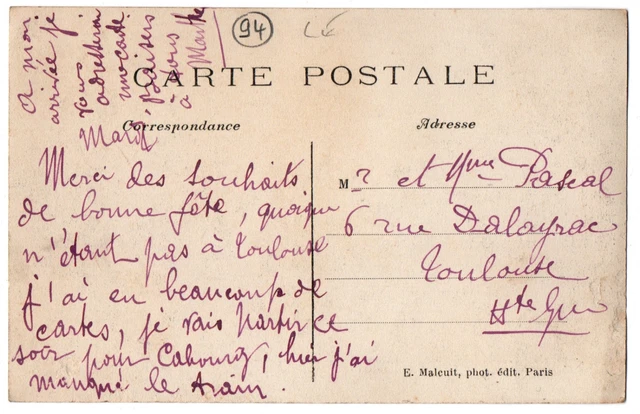 94
CARTE POSTALE
Correspondance
Adresse
A mon
arrivée je
vous
adresserai
une carte
baisers
à vous
à Marthe
Mardi
Merci des souhaits
de bonne fête, quoique
n'étant pas à Toulouse
j'ai eu beaucoup de
cartes, je vais partir ce
soir pour Cabourg, hier j'ai
manqué le train.
Mr et Mme Pascal
6 rue Dalayrac
Toulouse
Hte Gne
E. Malcuit, phot. édit. Paris